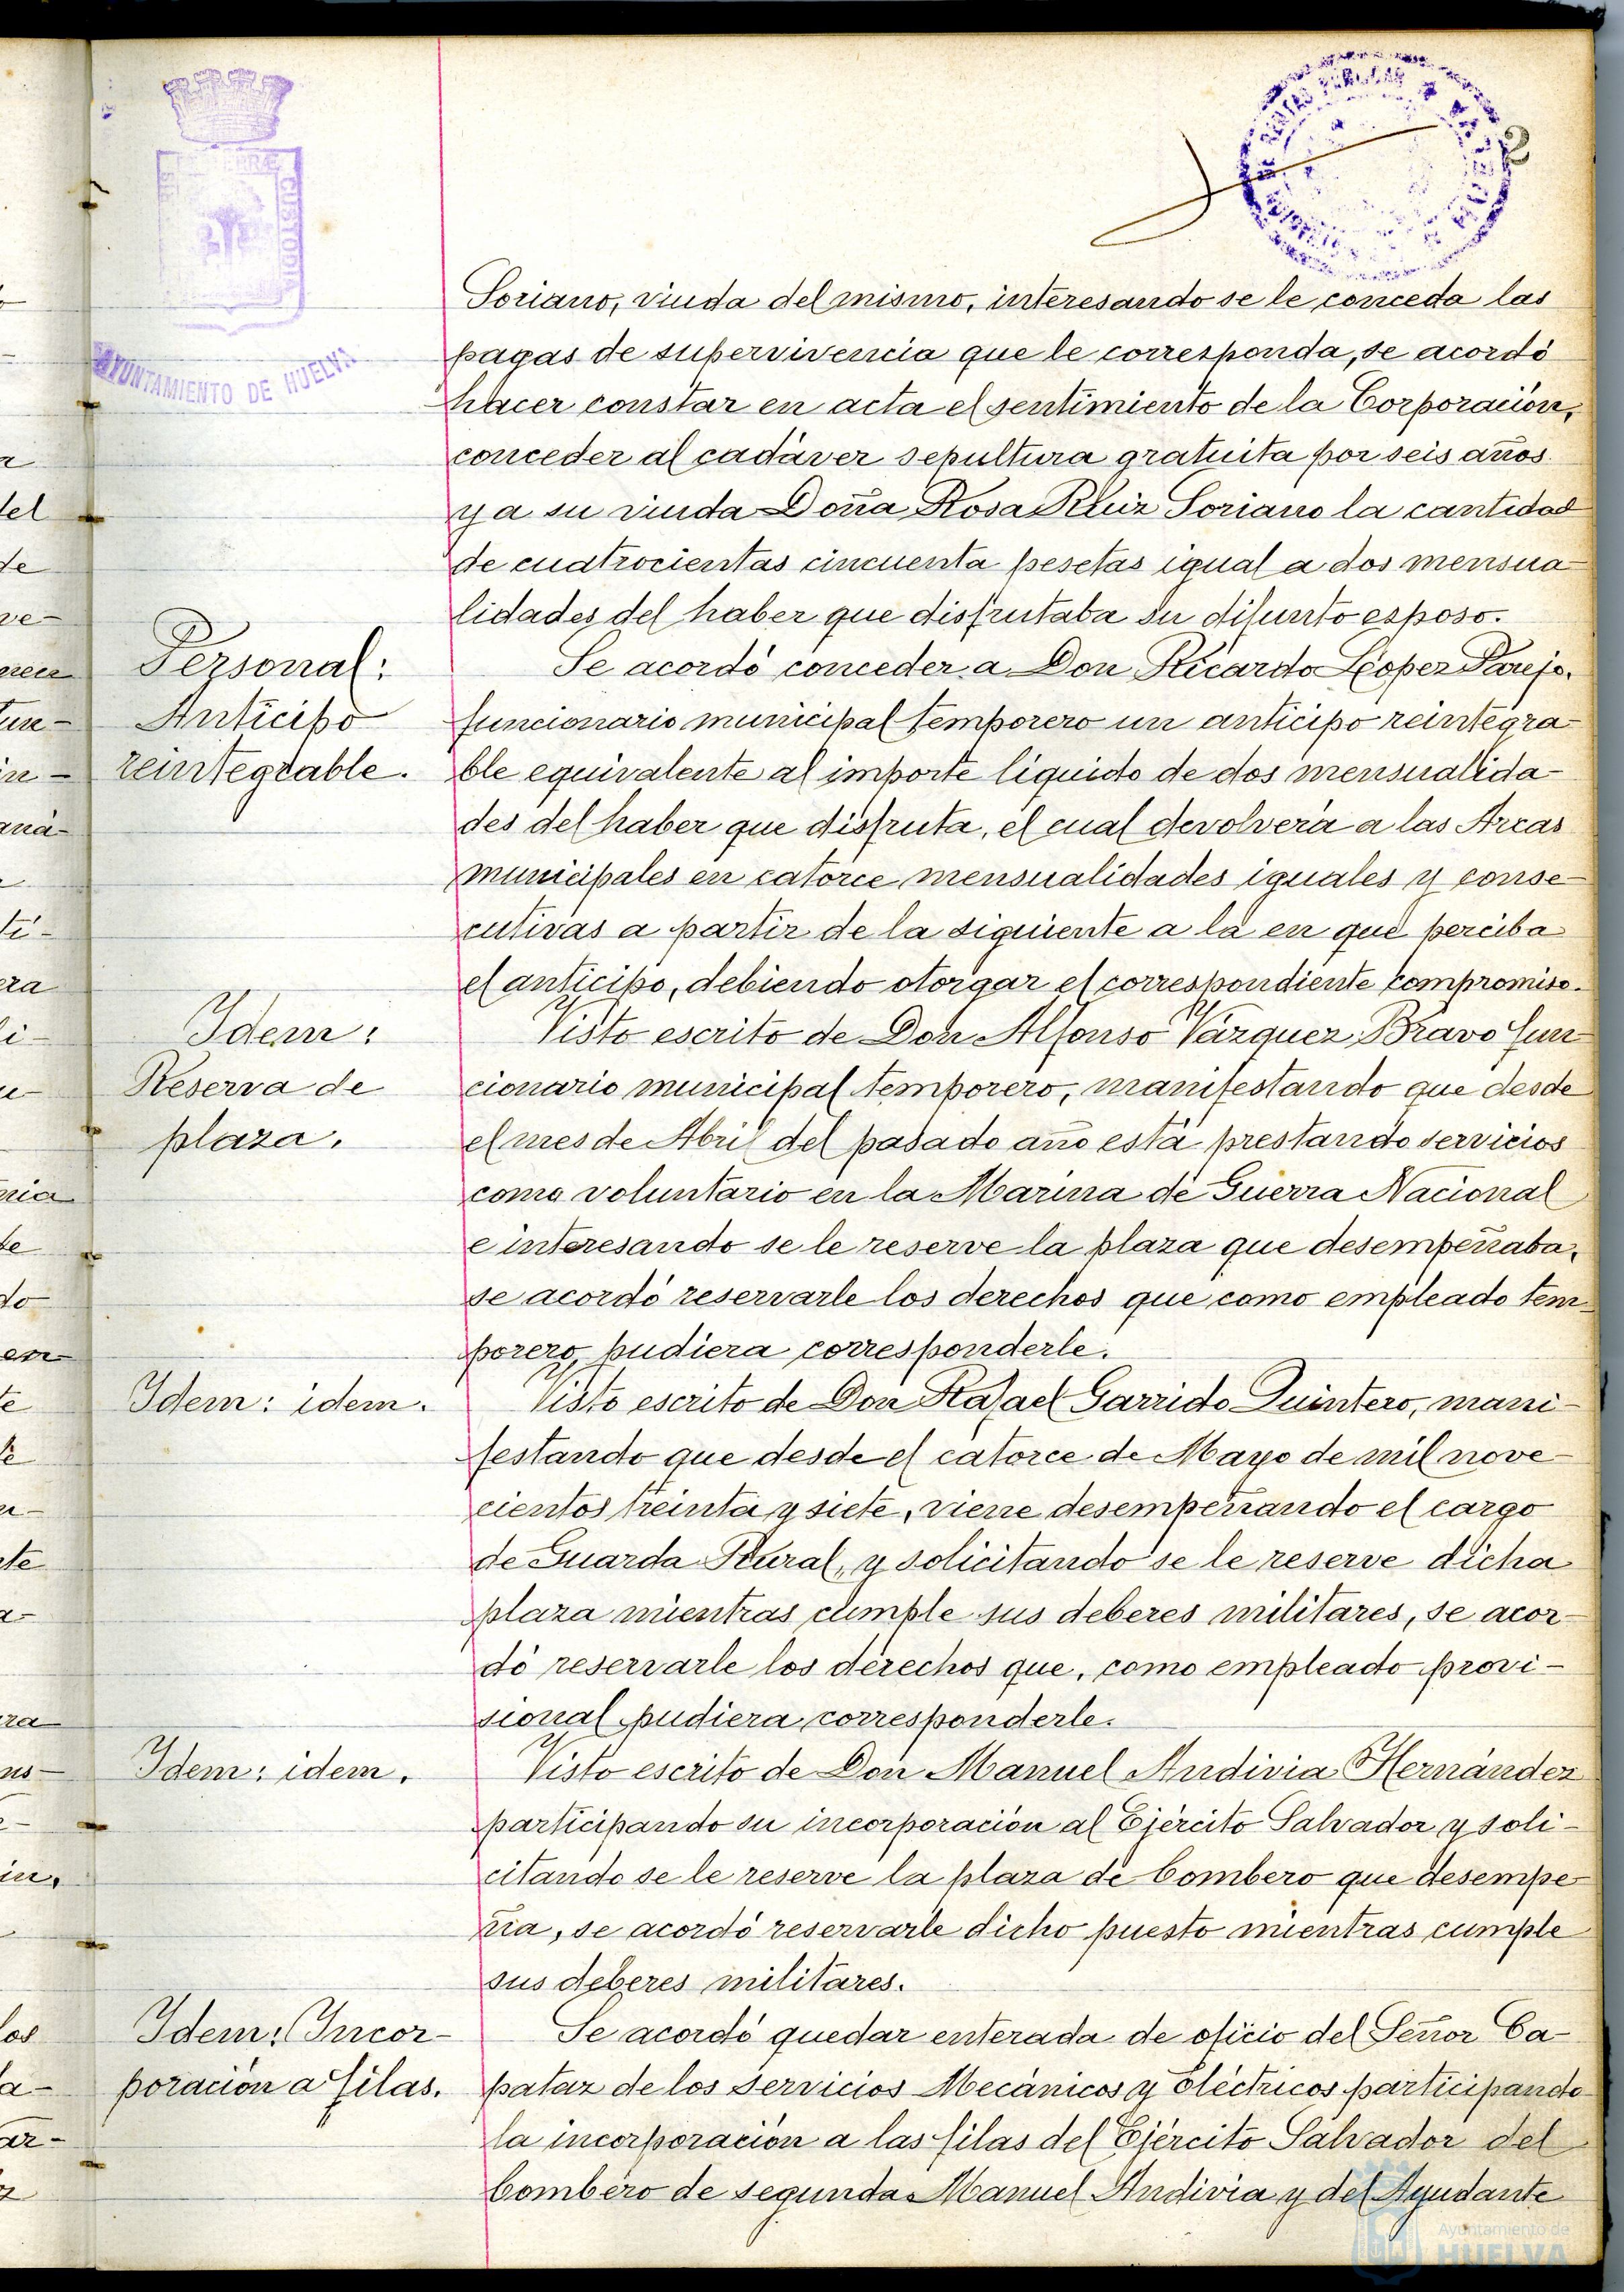 2
AYUNTAMIENTO DE HUELVA
CUSTODIA
Soriano, viuda del mismo, interesando se le conceda las
pagas de supervivencia que le corresponda, se acordó
hacer constar en acta el sentimiento de la Corporación,
conceder al cadáver sepultura gratuita por seis años
y a su viuda Doña Rosa Ruiz Soriano la cantidad
de cuatrocientas cincuenta pesetas igual a dos mensua-
lidades del haber que disfrutaba su difunto esposo.
Personal:
Anticipo
reintegrable.
Se acordó conceder a Don Ricardo López Parejo,
funcionario municipal temporero un anticipo reintegra-
ble equivalente al importe líquido de dos mensualida-
des del haber que disfruta, el cual devolverá a las Arcas
municipales en catorce mensualidades iguales y conse-
cutivas a partir de la siguiente a la en que perciba
el anticipo, debiendo otorgar el correspondiente compromiso.
Idem:
Reserva de
plaza.
Visto escrito de Don Alfonso Vázquez Bravo fun-
cionario municipal temporero, manifestando que desde
el mes de Abril del pasado año está prestando servicios
como voluntario en la Marina de Guerra Nacional
e interesando se le reserve la plaza que desempeñaba,
se acordó reservarle los derechos que como empleado tem-
porero, pudiera corresponderle.
Idem: idem.
Visto escrito de Don Rafael Garrido Quintero, mani-
festando que desde el catorce de Mayo de mil nove-
cientos treinta y siete, viene desempeñando el cargo
de Guarda Rural, y solicitando se le reserve dicha
plaza mientras cumple sus deberes militares, se acor-
dó reservarle los derechos que, como empleado provi-
sional pudiera corresponderle.
Idem: idem.
Visto escrito de Don Manuel Andivia Hernández
participando su incorporación al Ejército Salvador y soli-
citando se le reserve la plaza de bombero que desempe-
ña, se acordó reservarle dicho puesto mientras cumple
sus deberes militares.
Idem: Incor-
poración a filas.
Se acordó quedar enterada de oficio del Señor Ca-
pataz de los servicios Mecánicos y eléctricos participando
la incorporación a las filas del Ejército Salvador del
bombero de segunda Manuel Andivia y del Ayudante
Ayuntamiento de
HUELVA